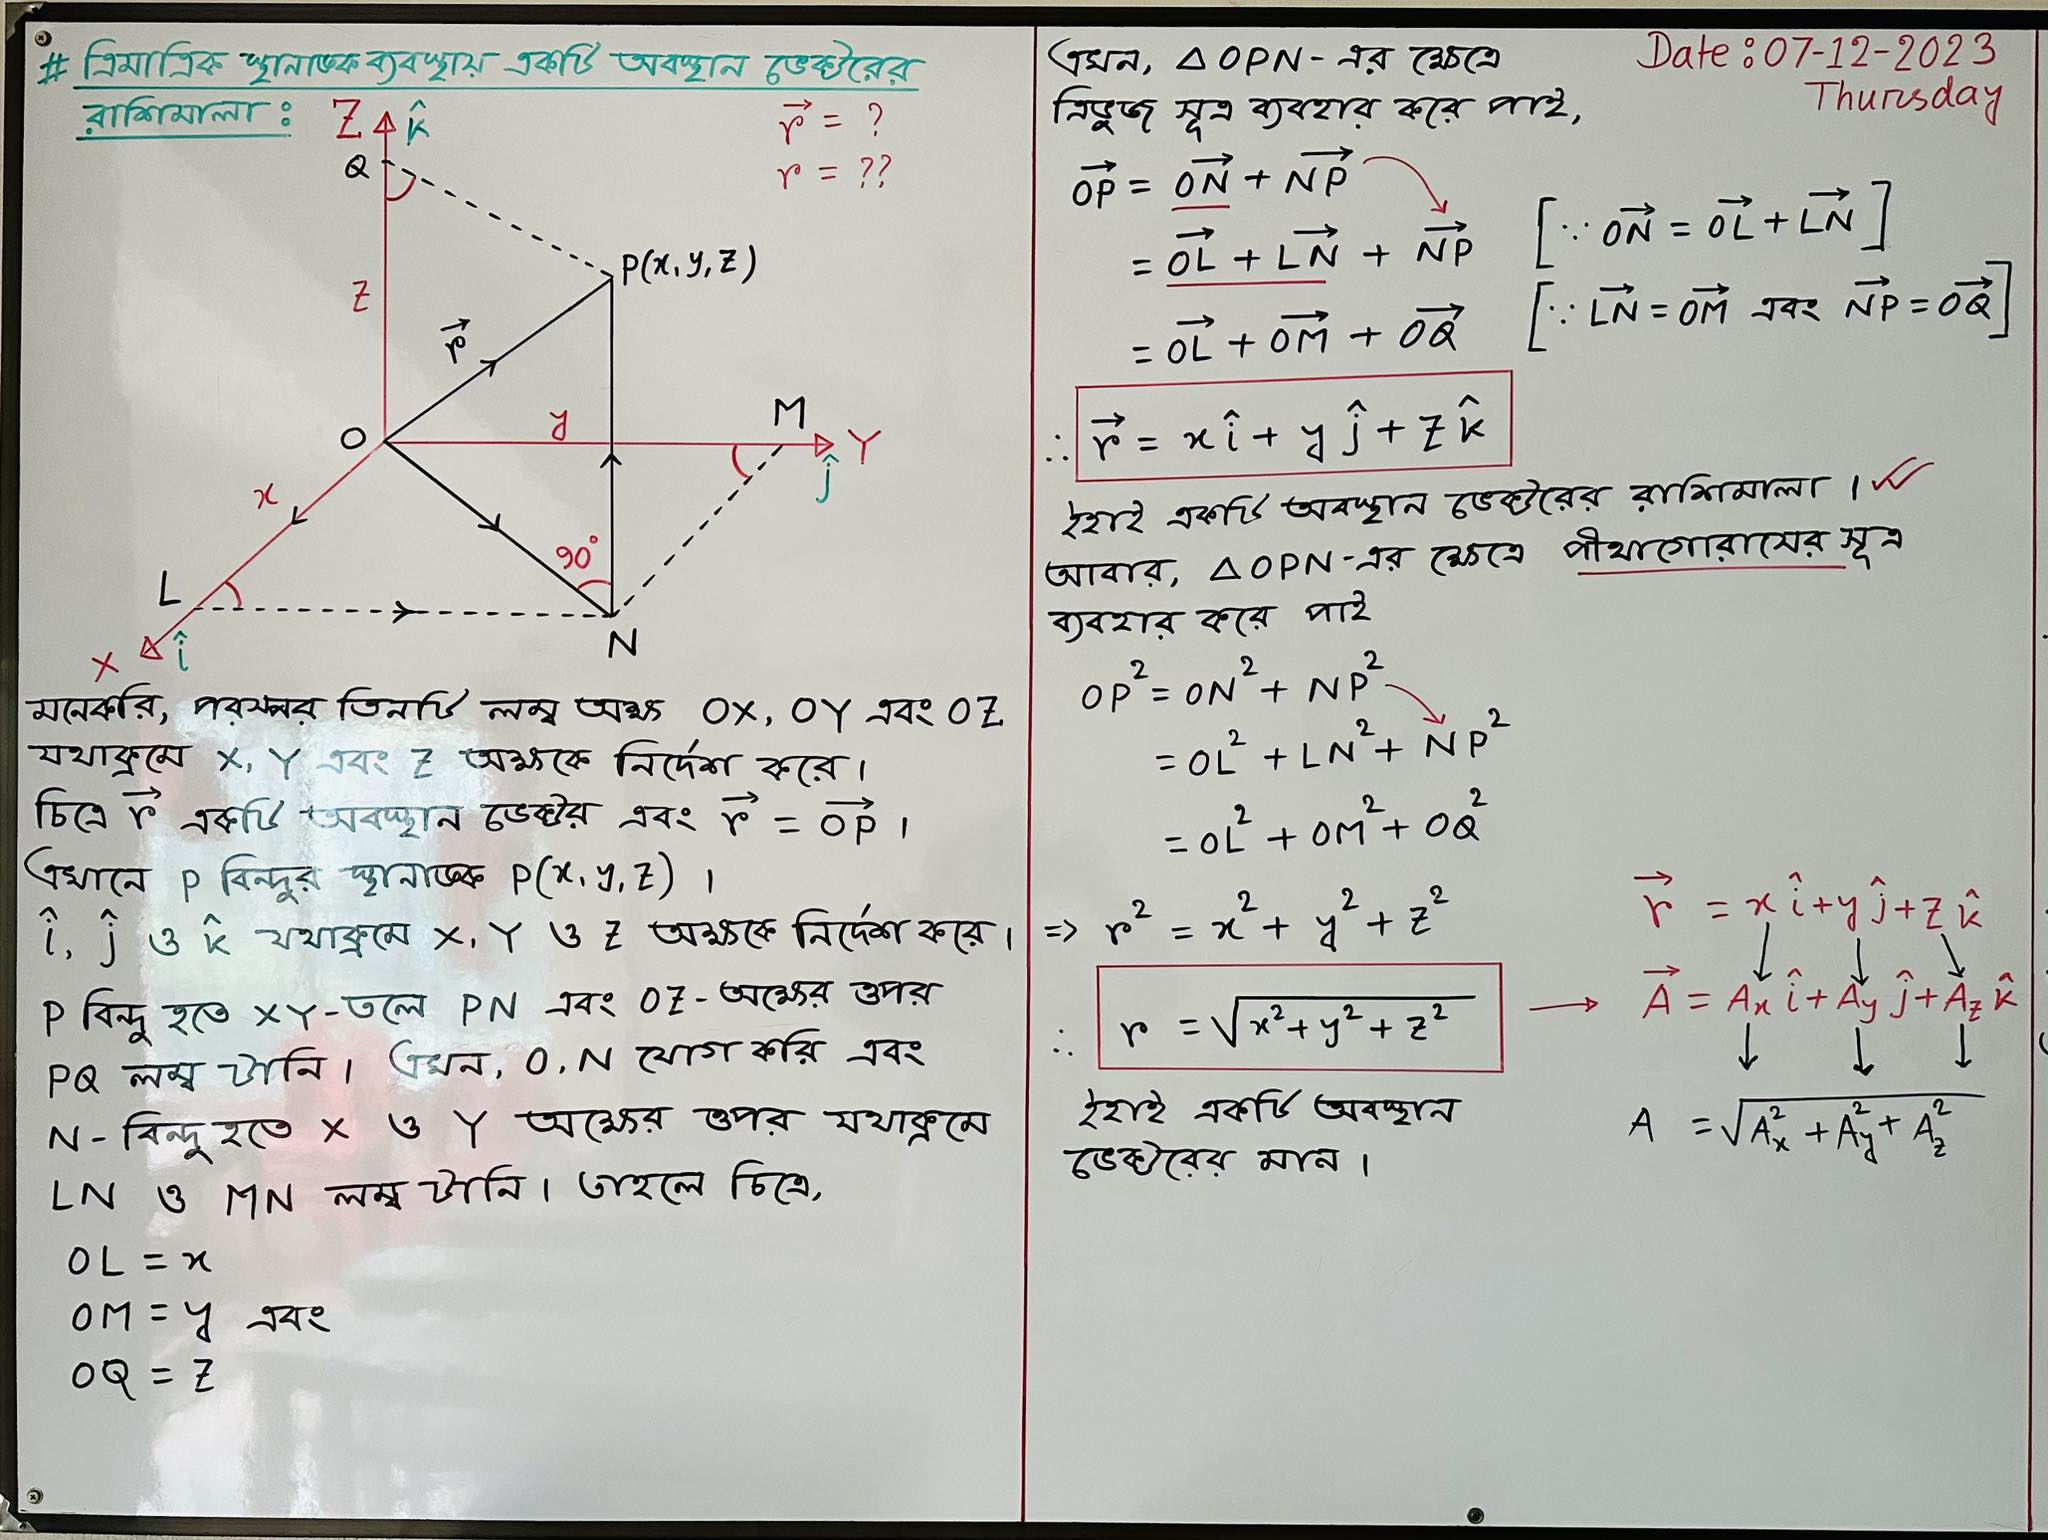 # ত্রিমাত্রিক স্থানাঙ্ক ব্যবস্থায় একটি অবস্থান ভেক্টরের
রাশিমালা :
Z k̂
r⃗ = ?
r = ??
Q
P(x, y, z)
z
r⃗
O
y
M
Y
ĵ
x
90°
L
N
X
î
মনেকরি, পরস্পর তিনটি লম্ব অক্ষ OX, OY এবং OZ
যথাক্রমে X, Y এবং Z অক্ষকে নির্দেশ করে।
চিত্রে r⃗ একটি অবস্থান ভেক্টর এবং r⃗ = OP⃗ ।
এখানে P বিন্দুর স্থানাঙ্ক P(x, y, z) ।
î, ĵ ও k̂ যথাক্রমে X, Y ও Z অক্ষকে নির্দেশ করে।
P বিন্দু হতে XY-তলে PN এবং OZ-অক্ষের ওপর
PQ লম্ব টানি। এখন, O, N যোগ করি এবং
N- বিন্দু হতে X ও Y অক্ষের ওপর যথাক্রমে
LN ও MN লম্ব টানি। তাহলে চিত্রে,
OL = x
OM = y এবং
OQ = z
Date : 07-12-2023
Thursday
এখন, △OPN-এর ক্ষেত্রে
ত্রিভুজ সূত্র ব্যবহার করে পাই,
OP⃗ = ON⃗ + NP⃗
= OL⃗ + LN⃗ + NP⃗ [∵ ON⃗ = OL⃗ + LN⃗]
= OL⃗ + OM⃗ + OQ⃗ [∵ LN⃗ = OM⃗ এবং NP⃗ = OQ⃗]
∴ r⃗ = x î + y ĵ + z k̂
ইহাই একটি অবস্থান ভেক্টরের রাশিমালা।
আবার, △OPN-এর ক্ষেত্রে পীথাগোরাসের সূত্র
ব্যবহার করে পাই
OP² = ON² + NP²
= OL² + LN² + NP²
= OL² + OM² + OQ²
=> r² = x² + y² + z²
∴ r = √x² + y² + z² →
ইহাই একটি অবস্থান
ভেক্টরের মান।
r⃗ = x î + y ĵ + z k̂
A⃗ = Aₓ î + Ay ĵ + Az k̂
A = √Aₓ² + Ay² + Az²